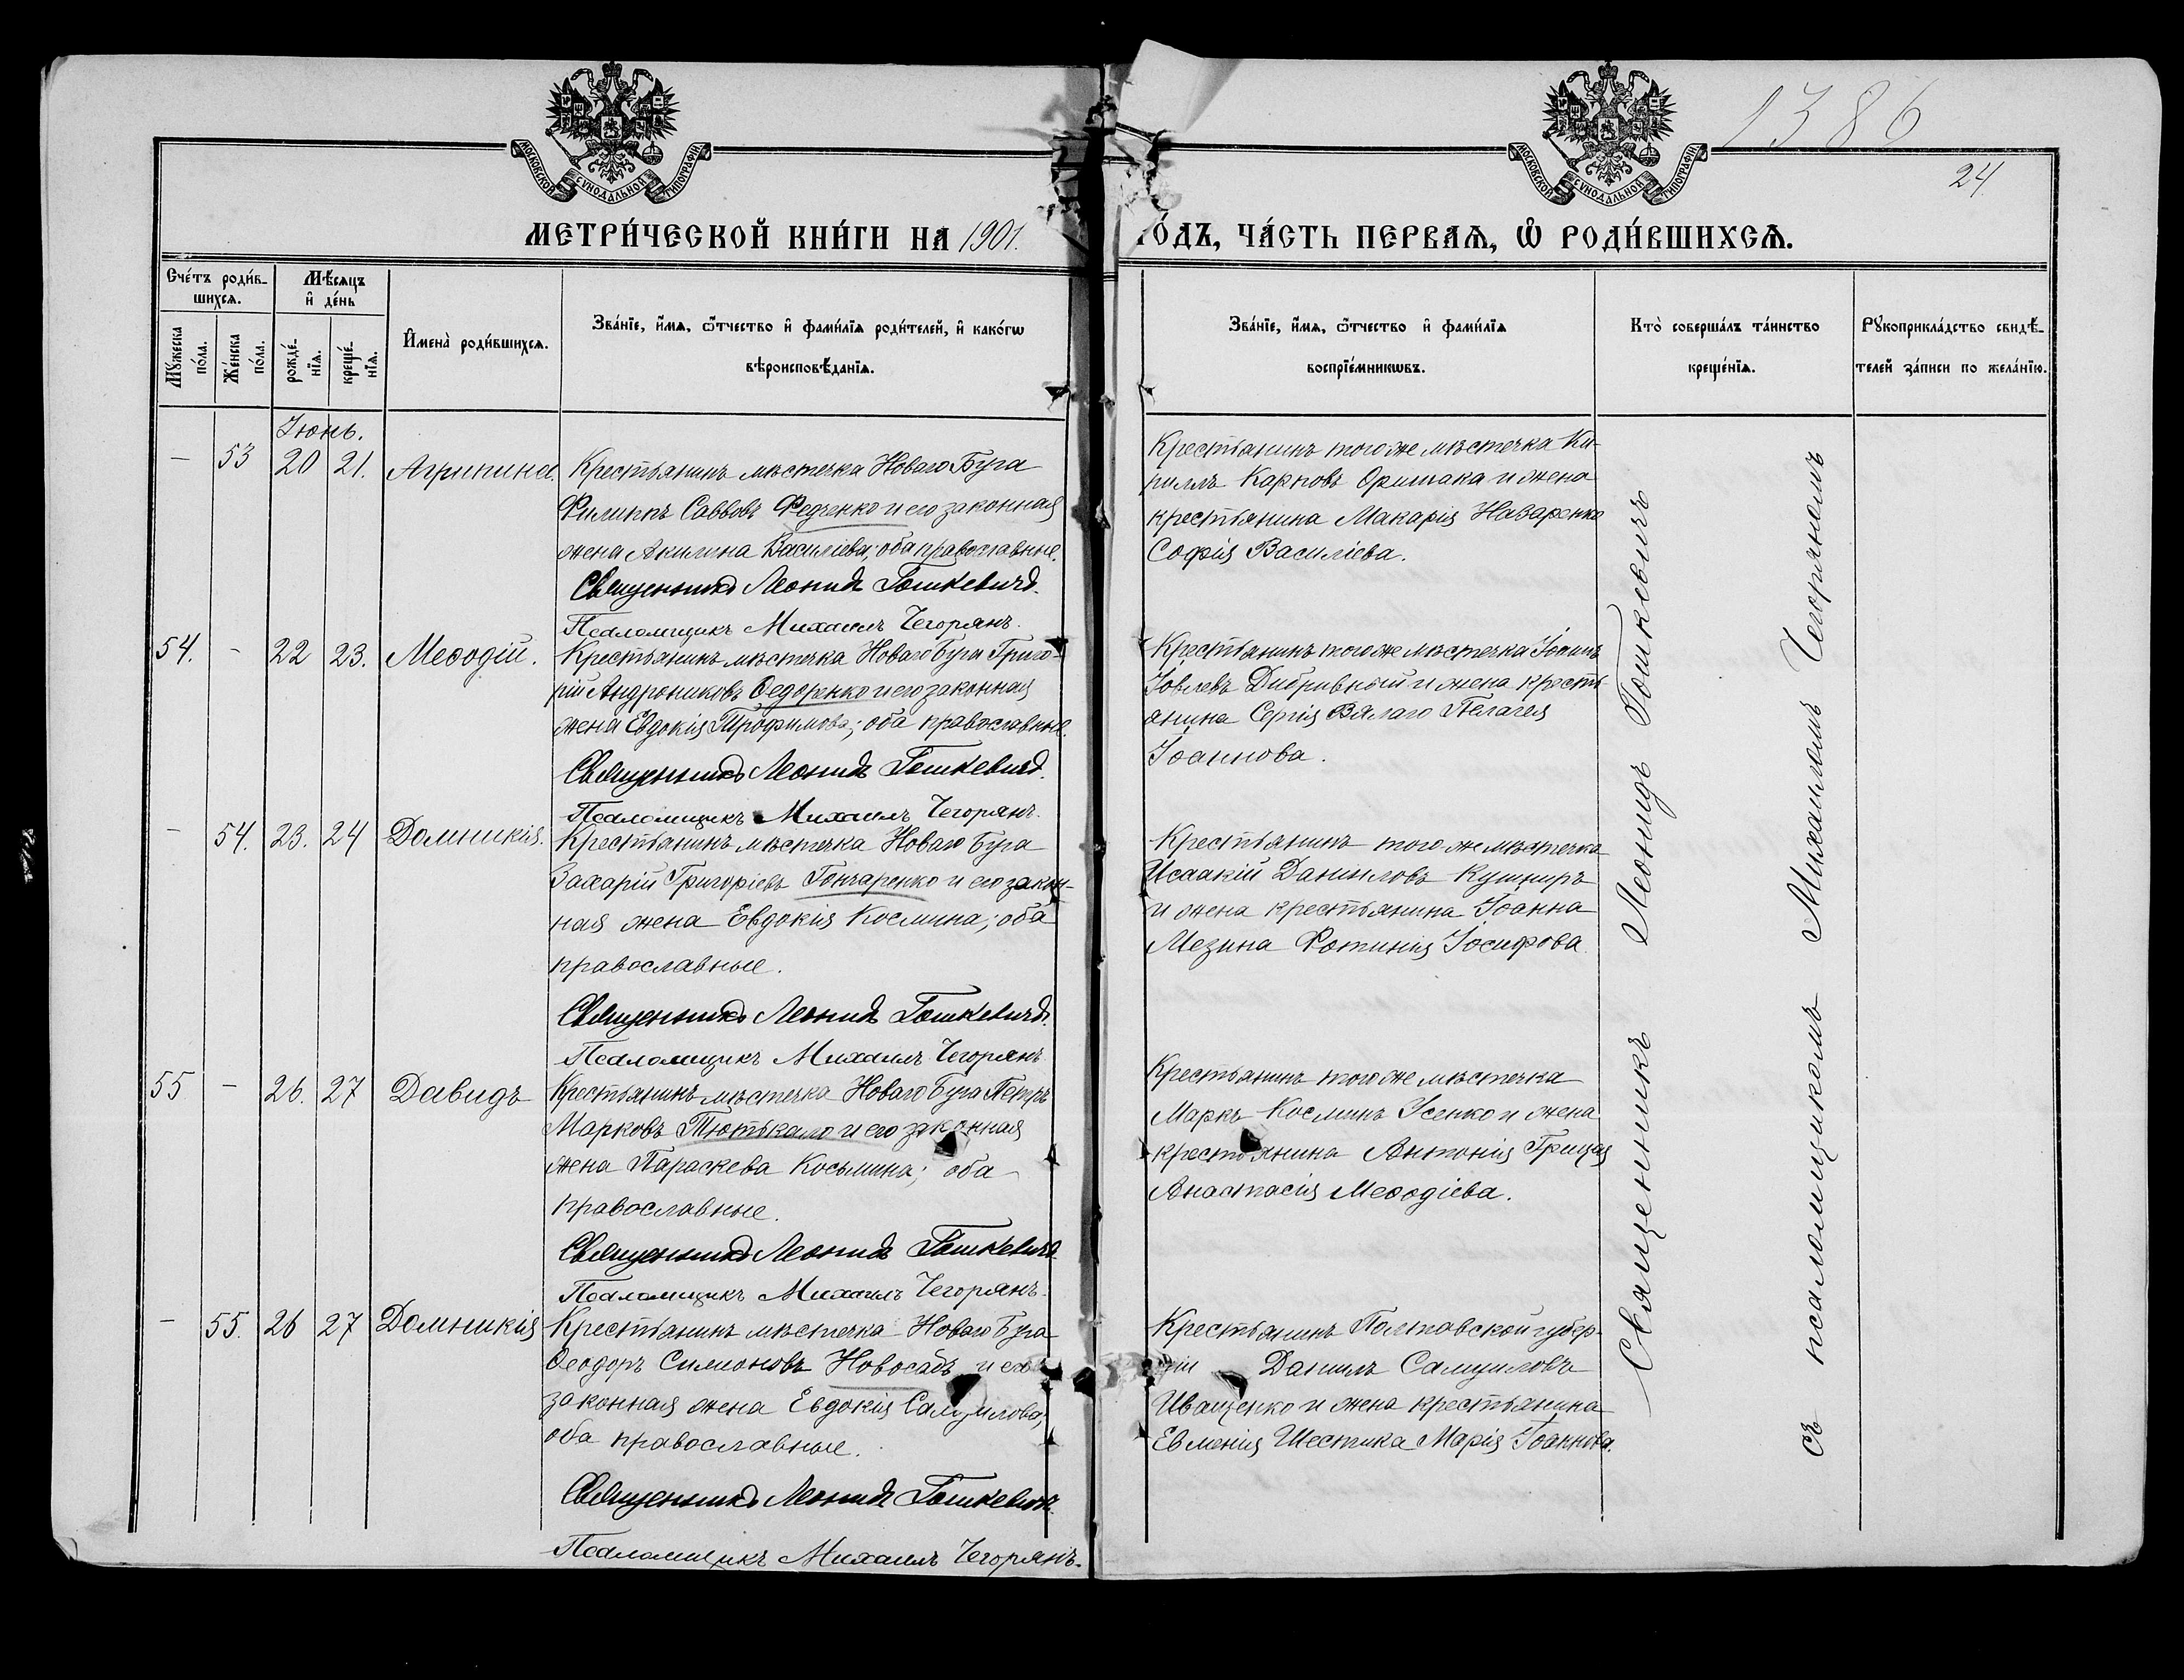 1386
24.
МОСКОВСКОЙ СѴНОДАЛЬНОЙ ТИПОГРАФІИ
МОСКОВСКОЙ СѴНОДАЛЬНОЙ ТИПОГРАФІИ
МЕТРИ́ЧЕСКОЙ КНИ́ГИ НА 1901. ГО́ДЪ, ЧА́СТЬ ПЕРВАѦ, Ѡ҆ РОДИ́ВШИХСѦ.
Сче́тъ роди́в-
шихсѧ.
Мꙋ́жеска
по́ла.
Же́нска
по́ла.
Мѣ́сѧцъ
и҆ де́нь
рожде́-
нїѧ.
креще́-
нїѧ.
И҆мена̀ роди́вшихсѧ.
Зва́нїе, и҆́мѧ, ѻ҆́тчество и҆ фами́лїѧ роди́телей, и҆ како́гѡ
вѣроисповѣ́данїѧ.
Зва́нїе, и҆́мѧ, ѻ҆́тчество и҆ фами́лїѧ
воспрїе́мникѡвъ.
Кто̀ соверша́лъ та́инство
креще́нїѧ.
Рꙋкоприкла́дство свидѣ́-
телей за́писи по жела́нїю.
Іюнь.
— 53 20 21. Агрипина.
Крестьянинъ мѣстечка Новаго Буга
Филиппъ Саввовъ Федченко и его законная
жена Акилина Василіева; оба православные.
Священникъ Леонидъ Гошкевичъ.
Псаломщикъ Михаилъ Чегорянъ.
Крестьянинъ того же мѣстечка Ки-
риллъ Карповъ Оришака и жена
крестьянина Макарія Назаренко
Софія Василіева.
54. - 22 23. Меѳодій.
Крестьянинъ мѣстечка Новаго Буга Григо-
рій Андрониковъ Ѳедоренко и его законная
жена Евдокія Трофимова; оба православные.
Священникъ Леонидъ Гошкевичъ.
Псаломщикъ Михаилъ Чегорянъ.
Крестьянинъ того же мѣстечка Іоаннъ
Іовлевъ Дибривный и жена кресть-
янина Сергія Вялаго Пелагея
Іоаннова.
- 54. 23. 24 Домникія.
Крестьянинъ мѣстечка Новаго Буга
Захарій Григоріевъ Гончаренко и его закон-
ная жена Евдокія Космина; оба
православные.
Священникъ Леонидъ Гошкевичъ.
Псаломщикъ Михаилъ Чегорянъ
Крестьянинъ того же мѣстечка
Исаакій Даниловъ Кушниръ
и жена крестьянина Іоанна
Мезина Фотинія Іосифова.
55 - 26. 27 Давидъ
Крестьянинъ мѣстечка Новаго Буга Петръ
Марковъ Тютькало и его законная
жена Параскева Косьмина; оба
православные.
Священникъ Леонидъ Гошкевичъ
Псаломщикъ Михаилъ Чегорянъ.
Крестьянинъ того же мѣстечка
Маркъ Косминъ Усенко и жена
крестьянина Антонія Грицая
Анастасія Меѳодіева.
- 55. 26 27 Домникія
Крестьянинъ мѣстечка Новаго Буга
Ѳеодоръ Симоновъ Новосадъ и его
законная жена Евдокія Самуилова;
оба православные.
Священникъ Леонидъ Гошкевичъ.
Псаломщикъ Михаилъ Чегорянъ.
Крестьянинъ Полтавской губер-
ніи Данилъ Самуиловъ
Иващенко и жена крестьянина
Евменія Шестика Марія Іоаннова.
Священникъ Леонидъ Гошкевичъ
съ псаломщикомъ Михаиломъ Чегоряномъ